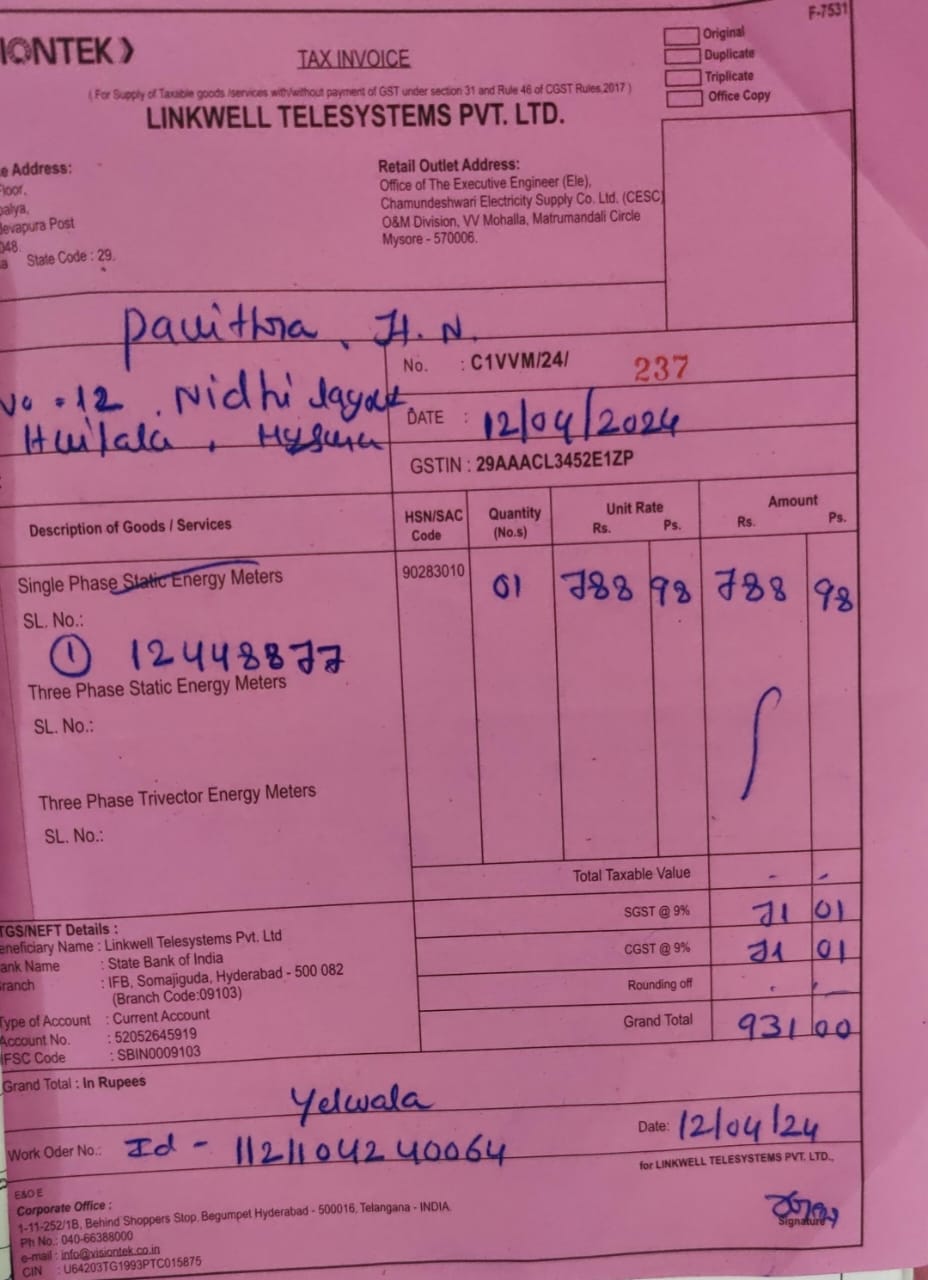 F-7531
IONTEK
TAX INVOICE
Original
Duplicate
Triplicate
Office Copy
( For Supply of Taxable goods /services with/without payment of GST under section 31 and Rule 46 of CGST Rules,2017 )
LINKWELL TELESYSTEMS PVT. LTD.
e Address:
Floor,
palya,
devapura Post
048.
a State Code : 29.
Retail Outlet Address:
Office of The Executive Engineer (Ele),
Chamundeshwari Electricity Supply Co. Ltd. (CESC)
O&M Division, VV Mohalla, Matrumandali Circle
Mysore - 570006.
Pavithra . H. N.
No = 12 . Nidhi layout
Huilala , Mysuru
No. : C1VVM/24/ 237
DATE : 12/04/2024
GSTIN : 29AAACL3452E1ZP
Description of Goods / Services HSN/SAC Code Quantity (No.s) Unit Rate Rs. Ps. Amount Rs. Ps.
Single Phase Static Energy Meters 90283010 01 788 98 788 98
SL. No.:
① 12448877
Three Phase Static Energy Meters
SL. No.:
Three Phase Trivector Energy Meters
SL. No.:
Total Taxable Value - -
SGST @ 9% 71 01
CGST @ 9% 71 01
Rounding off
Grand Total 931 00
TGS/NEFT Details :
eneficiary Name : Linkwell Telesystems Pvt. Ltd
ank Name : State Bank of India
ranch : IFB, Somajiguda, Hyderabad - 500 082
(Branch Code:09103)
Type of Account : Current Account
Account No. : 52052645919
IFSC Code : SBIN0009103
Grand Total : In Rupees
Yelwala
Work Oder No.: Id - 1121104240064
Date: 12/04/24
for LINKWELL TELESYSTEMS PVT. LTD.,
Signature
E&O E
Corporate Office :
1-11-252/1B, Behind Shoppers Stop, Begumpet Hyderabad - 500016, Telangana - INDIA.
Ph No.: 040-66388000
e-mail : info@visiontek.co.in
CIN : U64203TG1993PTC015875